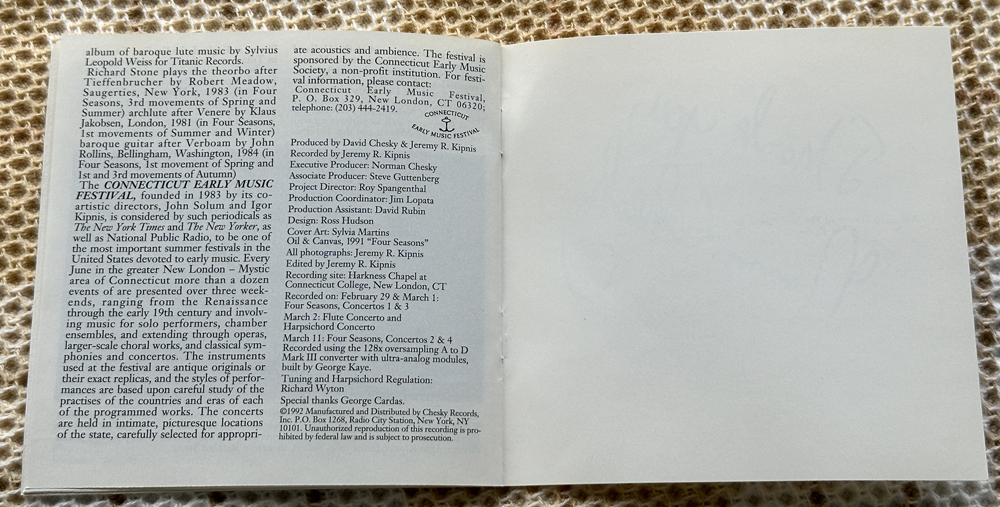 album of baroque lute music by Sylvius
Leopold Weiss for Titanic Records.
Richard Stone plays the theorbo after
Tieffenbrucher by Robert Meadow,
Saugerties, New York, 1983 (in Four
Seasons, 3rd movements of Spring and
Summer) archlute after Venere by Klaus
Jakobsen, London, 1981 (in Four Seasons,
1st movements of Summer and Winter)
baroque guitar after Verboam by John
Rollins, Bellingham, Washington, 1984 (in
Four Seasons, 1st movement of Spring and
1st and 3rd movements of Autumn)
The CONNECTICUT EARLY MUSIC
FESTIVAL, founded in 1983 by its co-
artistic directors, John Solum and Igor
Kipnis, is considered by such periodicals as
The New York Times and The New Yorker, as
well as National Public Radio, to be one of
the most important summer festivals in the
United States devoted to early music. Every
June in the greater New London – Mystic
area of Connecticut more than a dozen
events of are presented over three week-
ends, ranging from the Renaissance
through the early 19th century and involv-
ing music for solo performers, chamber
ensembles, and extending through operas,
larger-scale choral works, and classical sym-
phonies and concertos. The instruments
used at the festival are antique originals or
their exact replicas, and the styles of perfor-
mances are based upon careful study of the
practises of the countries and eras of each
of the programmed works. The concerts
are held in intimate, picturesque locations
of the state, carefully selected for appropri-
ate acoustics and ambience. The festival is
sponsored by the Connecticut Early Music
Society, a non-profit institution. For festi-
val information, please contact:
Connecticut Early Music Festival,
P. O. Box 329, New London, CT 06320;
telephone: (203) 444-2419.
CONNECTICUT
EARLY MUSIC FESTIVAL
Produced by David Chesky & Jeremy R. Kipnis
Recorded by Jeremy R. Kipnis
Executive Producer: Norman Chesky
Associate Producer: Steve Guttenberg
Project Director: Roy Spangenthal
Production Coordinator: Jim Lopata
Production Assistant: David Rubin
Design: Ross Hudson
Cover Art: Sylvia Martins
Oil & Canvas, 1991 “Four Seasons”
All photographs: Jeremy R. Kipnis
Edited by Jeremy R. Kipnis
Recording site: Harkness Chapel at
Connecticut College, New London, CT
Recorded on: February 29 & March 1:
Four Seasons, Concertos 1 & 3
March 2: Flute Concerto and
Harpsichord Concerto
March 11: Four Seasons, Concertos 2 & 4
Recorded using the 128x oversampling A to D
Mark III converter with ultra-analog modules,
built by George Kaye.
Tuning and Harpsichord Regulation:
Richard Wyton
Special thanks George Cardas.
©1992 Manufactured and Distributed by Chesky Records,
Inc. P.O. Box 1268, Radio City Station, New York, NY
10101. Unauthorized reproduction of this recording is pro-
hibited by federal law and is subject to prosecution.